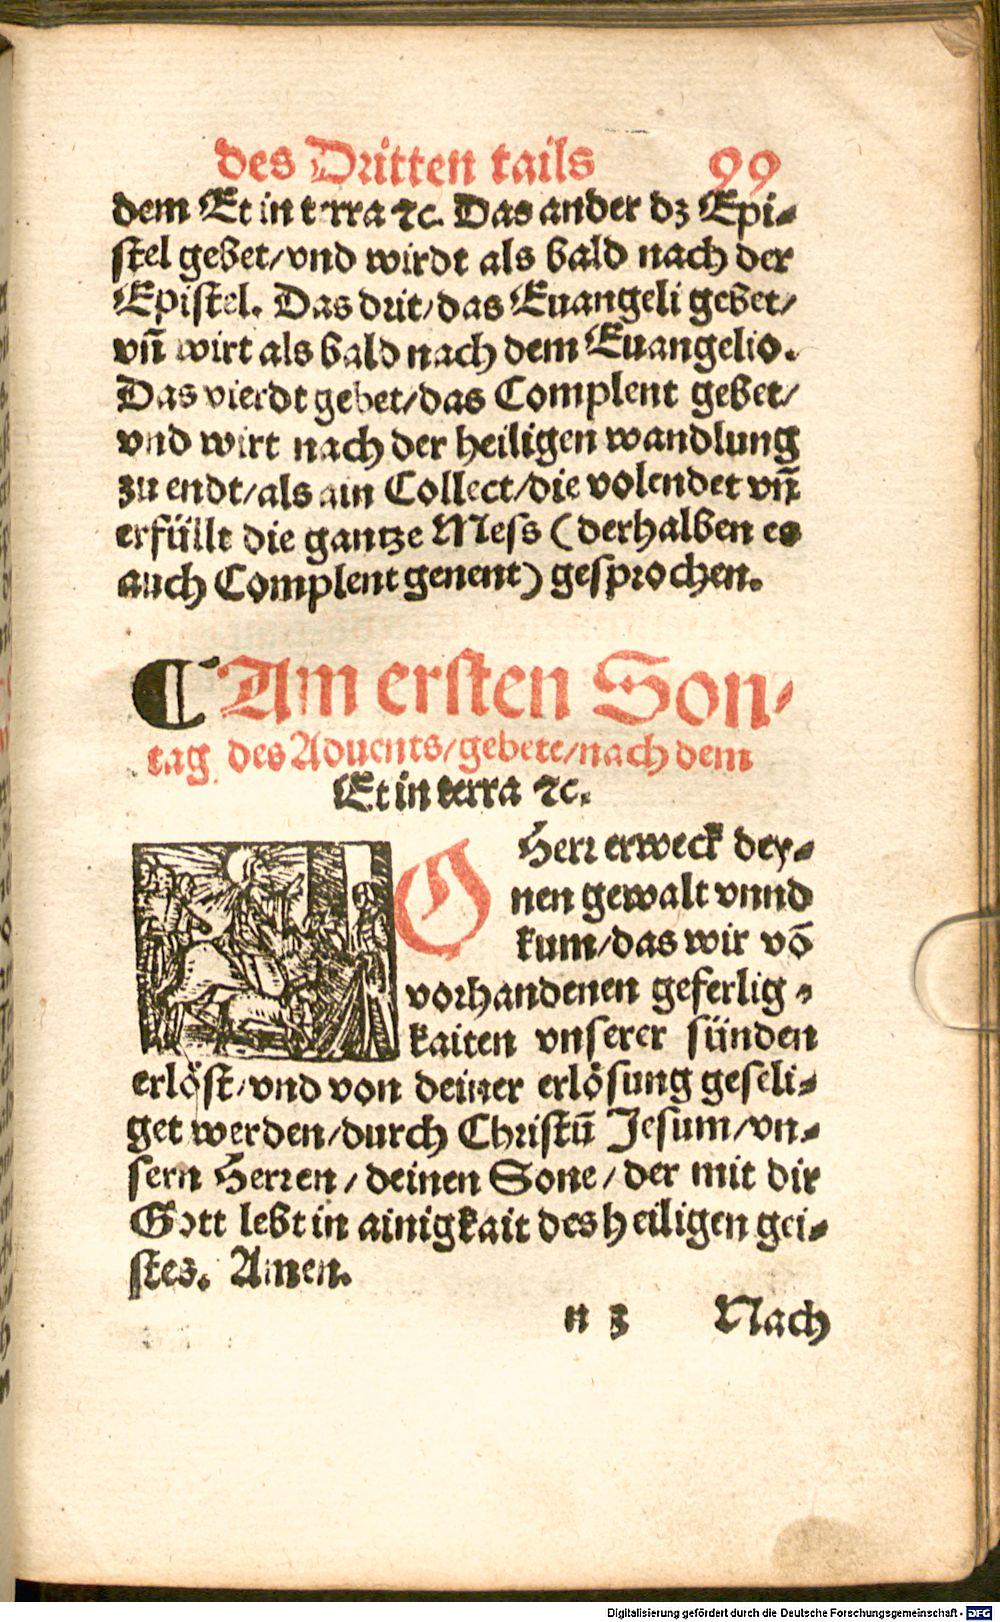 des Dritten tails 99
dem Et in terra ⁊c. Das ander dz Epi-
stel gebet/vnd wirdt als bald nach der
Epistel. Das drit/das Euangeli gebet/
vñ wirt als bald nach dem Euangelio.
Das vierdt gebet/das Complent gebet/
vnd wirt nach der heiligen wandlung
zu endt/als ain Collect/die volendet vñ
erfüllt die gantze Mess (derhalben es
auch Complent genent) gesprochen.
¶ Am ersten Son-
tag des Aduents/gebete/nach dem
Et in terra ⁊c.
O Herr erweck dey-
nen gewalt vnnd
kum/das wir võ
vorhandenen geferlig-
kaiten vnserer sünden
erlöst/vnd von deiner erlösung geseli-
get werden/durch Christũ Jesum/vn-
sern Herren/deinen Sone/der mit dir
Gott lebt in ainigkait des heiligen gei-
stes. Amen.
n 3 Nach
Digitalisierung gefördert durch die Deutsche Forschungsgemeinschaft - DFG